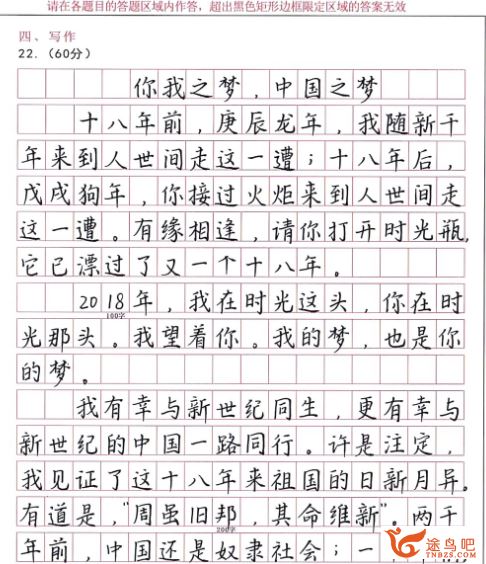 请在各题目的答题区域内作答，超出黑色矩形边框限定区域的答案无效
四、写作
22.（60分）
你我之梦，中国之梦
十八年前，庚辰龙年，我随新千
年来到人世间走这一遭；十八年后，
戊戌狗年，你接过火炬来到人世间走
这一遭。有缘相逢，请你打开时光瓶，
它已漂过了又一个十八年。
2018年，我在时光这头，你在时
100字
光那头。我望着你。我的梦，也是你
的梦。
我有幸与新世纪同生，更有幸与
新世纪的中国一路同行。许是注定，
我见证了这十八年来祖国的日新月异。
有道是，“周虽旧邦，其命维新”。两千
200字
年前，中国还是奴隶社会；一
途鸟吧
TNBZS.COM